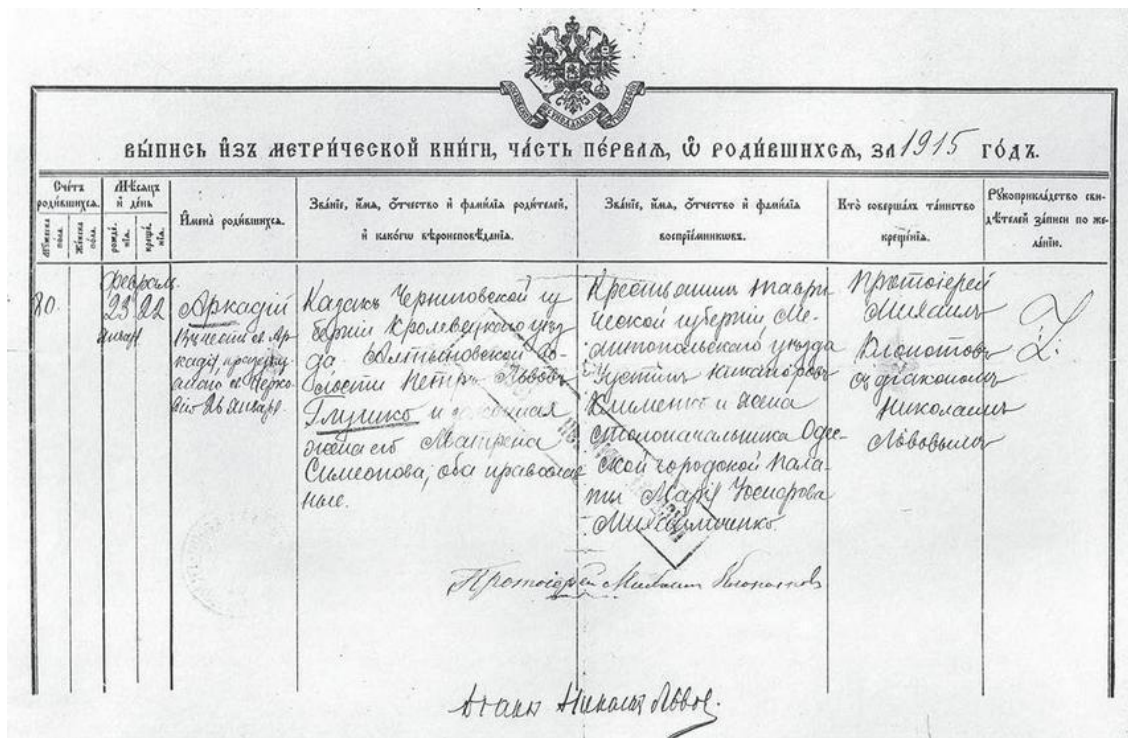 ВЫПИСЬ ИЗЪ МЕТРИЧЕСКОЙ КНИГИ, ЧАСТЬ ПЕРВАЯ, Ѿ РОДИВШИХСЯ, ЗА 1915 ГОДЪ.
Счетъ родившихся.
Мужеска пола.
Женска пола.
Мѣсяцъ и день
рожденія.
крещенія.
Имена родившихся.
Званіе, имя, отчество и фамилія родителей,
и какогѡ вѣроисповѣданія.
Званіе, имя, отчество и фамилія
воспріемниковъ.
Кто совершалъ таинство
крещенія.
Рукоприкладство свидѣтелей записи по желанію.
80.
Февраль
23 22
Январ
Аркадій
кадія, праздну
26 Январ.
Казакъ Черниговской гу
берніи Кролевецкаго уѣз
да Алтыновской во
лости Петръ Львовъ
Глушко и законная
жена его Матрена
Симеонова, оба православ
ные.
Крестьянинъ Таври
ческой губерніи Ме
литопольскаго уѣзда
Устинъ Никаноровъ
Клименко и жена
столоначальника Одес-
ской городской Пала
ты Марія
Протоіерей
Михаилъ
Клопотовъ
съ діакономъ
Николаемъ
Львовымъ
Протоіерей Михаилъ Клопотовъ
Николай Львов.